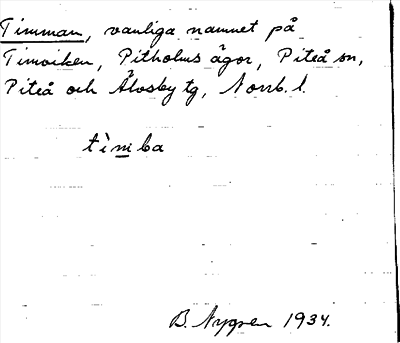 Timman, vanliga namnet på
Timviken, Pitholms ägor, Piteå sn,
Piteå och Älvsby tg, Norrb. l.
tìmba
B. Nygren 1934.